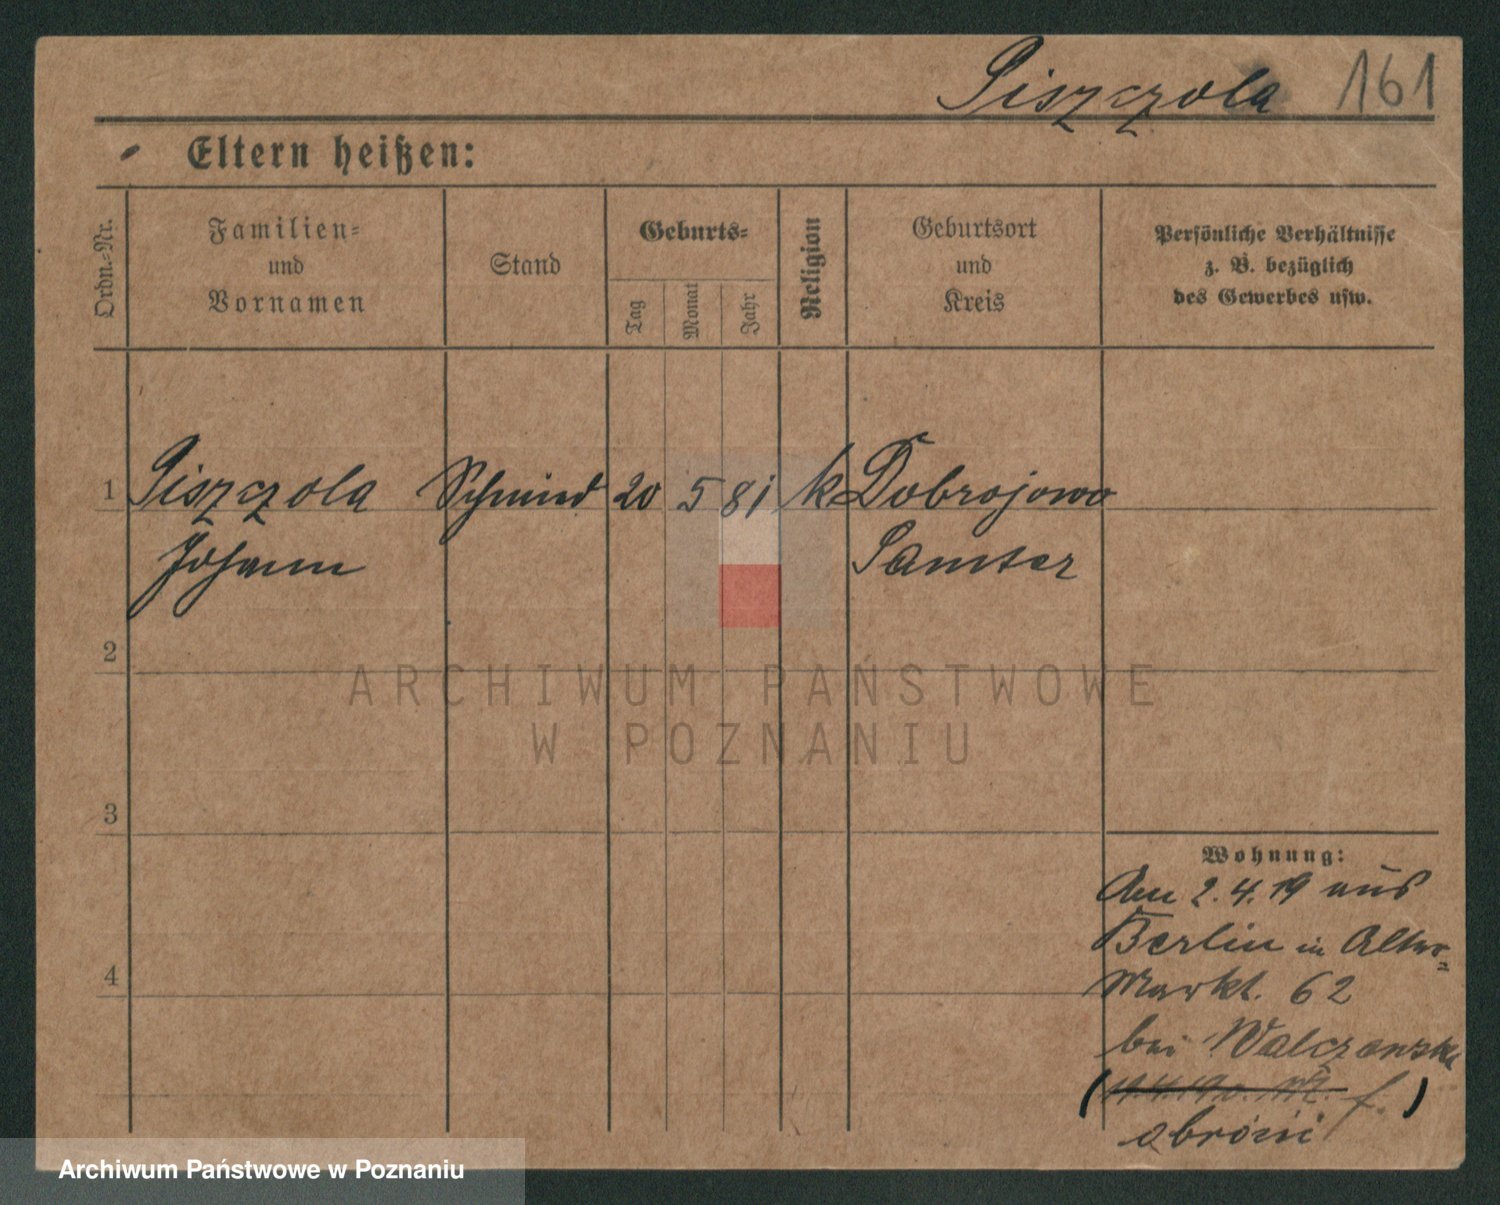 Piszczola 161
Eltern heißen:
Ordn.-Nr.
Familien-
und
Vornamen
Stand
Geburts-
Tag
Monat
Jahr
Religion
Geburtsort
und
Kreis
Persönliche Verhältnisse
z. B. bezüglich
des Gewerbes usw.
1 Piszczola Schmied 20 5 81 k Dobrojewo
Johann Samter
2
ARCHIWUM PAŃSTWOWE
W POZNANIU
3
Wohnung:
Am 2.4.19 aus
Berlin in Alter-
4
Markt. 62
bei Walczewska
Archiwum Państwowe w Poznaniu